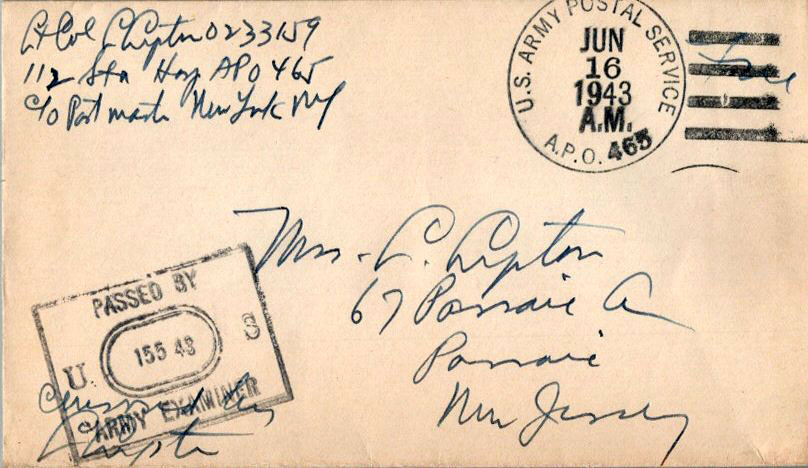 Lt Col C Lipton 0233159
112 Sta Hosp APO 465
c/o Postmaster New York NY
U.S. ARMY POSTAL SERVICE
JUN
16
1943
A.M.
A.P.O. 465
Free
Mrs. C. Lipton
67 Passaic A
Passaic
New Jersey
PASSED BY
U 15543 S
ARMY EXAMINER
Lipton